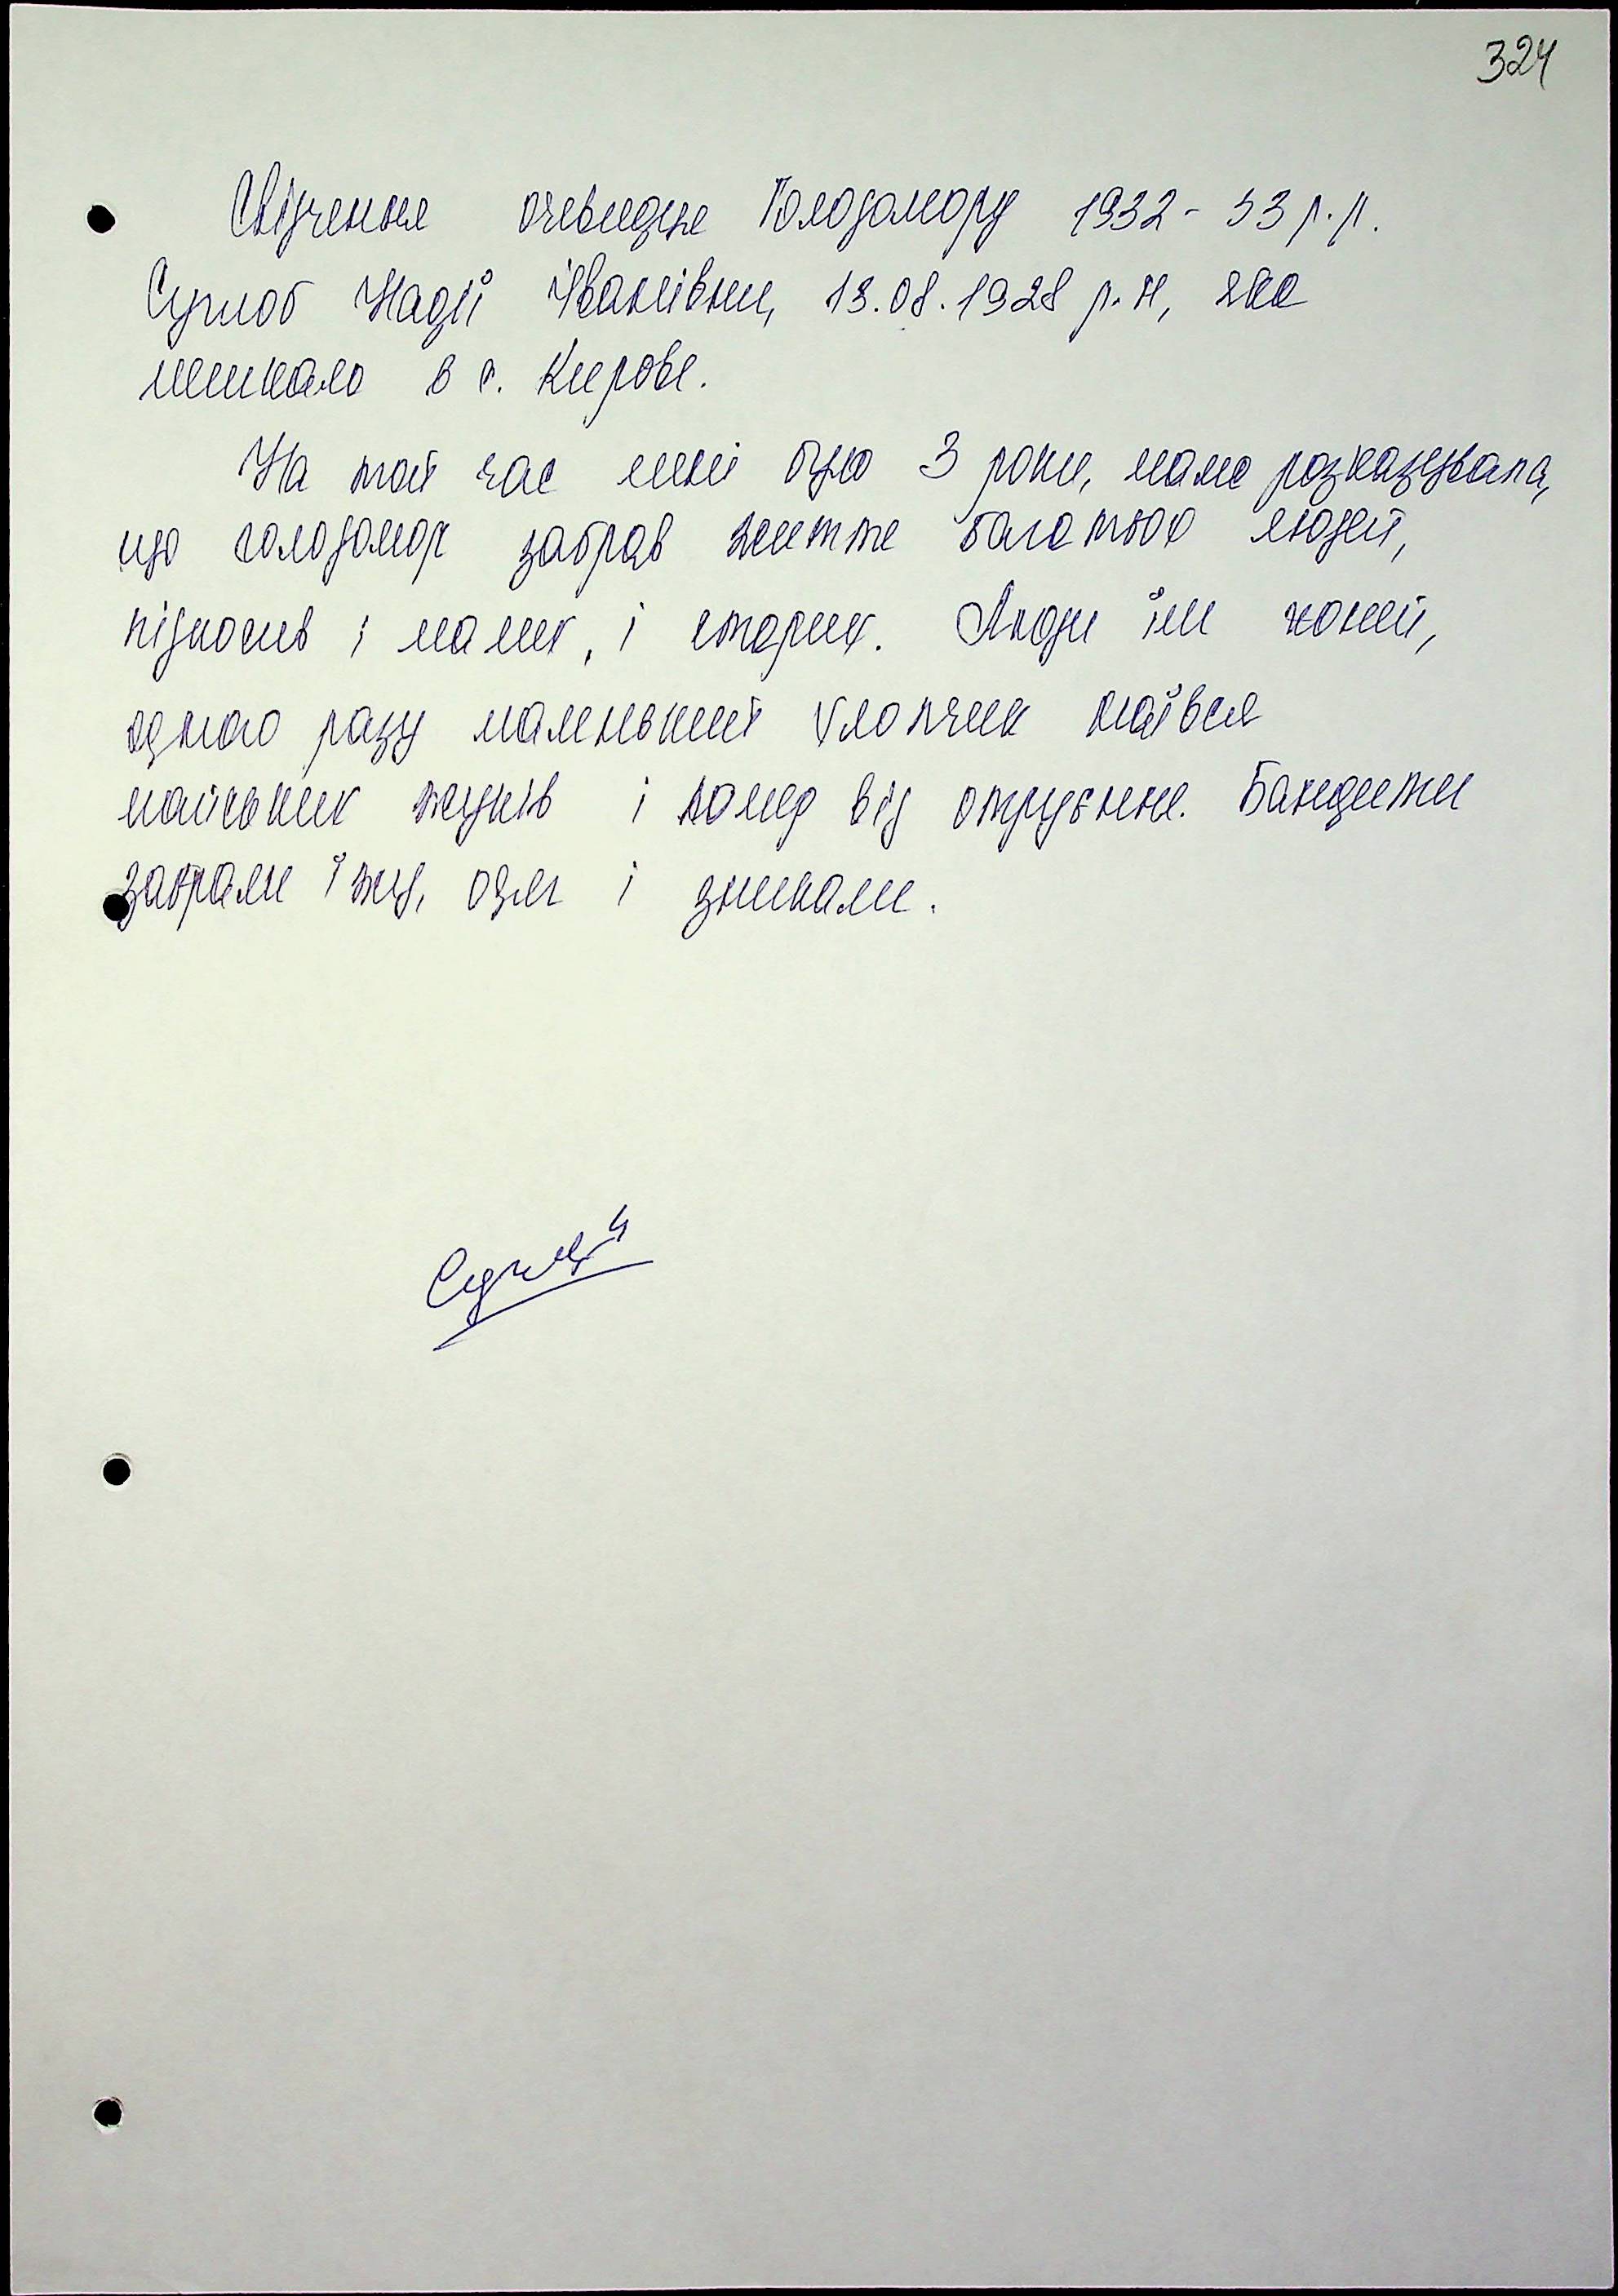 324
Свідчення очевидця Голодомору 1932 - 33 р.р.
Суглоб Надії Іванівни, 13.08.1928 р.н, яка
мешкала в с. Кирове.
На той час мені було 3 роки, мама розказувала,
що голодомор забрав життя багатьох людей,
підкосив і малих, і старих. Люди їли коней,
одного разу маленький хлопчик наївся
майських жуків і помер від отруєння. Бандити
забрали їжу, одяг і зникали.